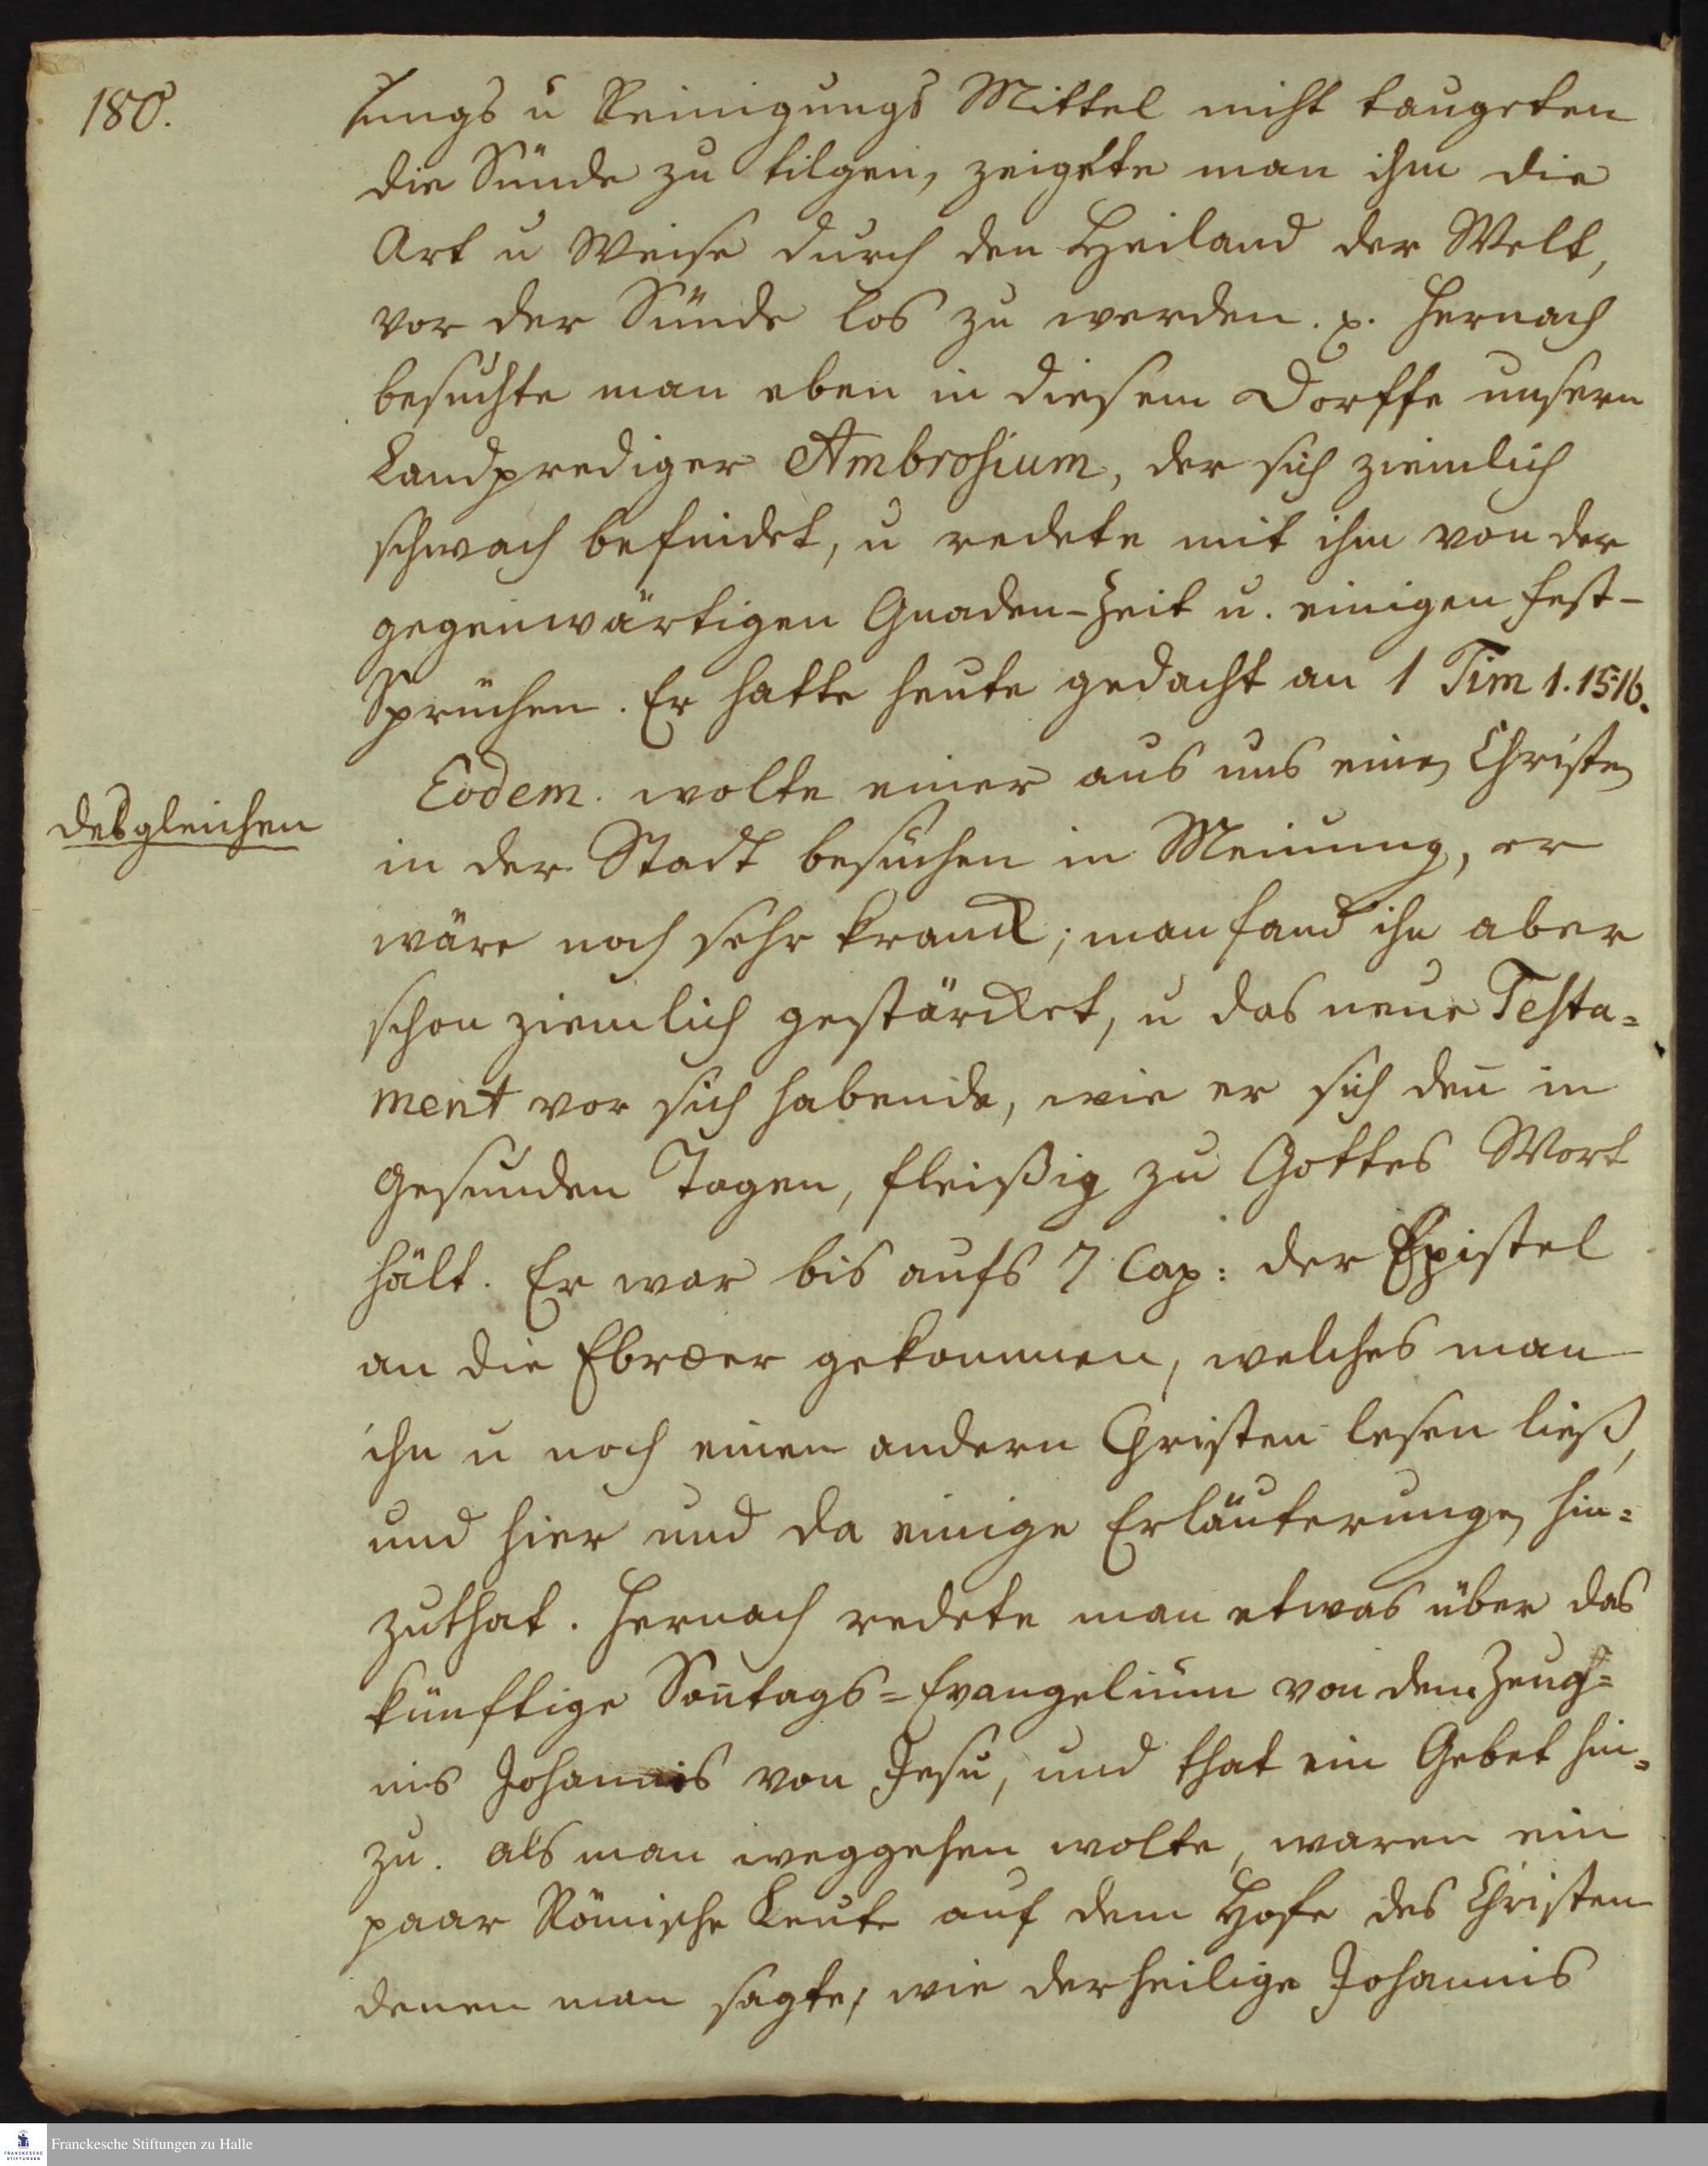 180.
sungs u Reinigungs Mittel nicht taugeten
die Sünde zu tilgen, zeigete man ihm die
Art u Weise durch den Heiland der Welt,
vor der Sünde los zu werden. p. Hernach
besuchte man eben in diesem Dorffe unsern
Landprediger Ambrosium, der sich ziemlich
schwach befindet, u redete mit ihm von der
gegenwärtigen Gnaden-Zeit u. einigen Fest-
Sprüchen. Er hatte heute gedacht an 1 Tim 1.15.16.
desgleichen
Eodem. wolte einer aus uns einen Christen
in der Stadt besuchen in Meinung, er
wäre noch sehr kranck; man fand ihn aber
schon ziemlich gestärcket, u das neue Testa=
ment vor sich habende, wie er sich deñ in
gesunden Tagen, fleißig zu Gottes Wort
hält. Er war bis aufs 7 Cap: der Epistel
an die Ebræer gekommen, welches man
ihn u noch einen andern Christen lesen ließ,
und hier und da einige Erläuterungen hin=
zuthat. Hernach redete man etwas über das
künftige Soñtags=Evangelium von dem Zeug=
nis Johannis von Jesu, und that ein Gebet hin=
zu. als man weggehen wolte, waren ein
paar Römische Leute auf dem Hofe des Christen
denen man sagte, wie der heilige Johannis
Franckesche Stiftungen zu Halle